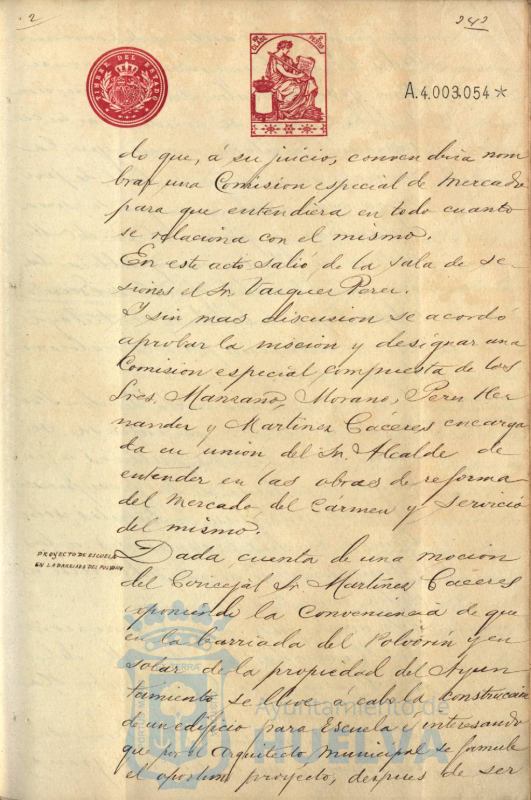 . 2
242
TIMBRE DEL ESTADO
CLASE
PESETAS
A.4.003.054*
do que, á su juicio, convendria nom
brar una Comision especial de Mercado
para que entendiera en todo cuanto
se relaciona con el mismo.
En este acto salió de la sala de se-
siones el Sr. Vazquez Perez.
Y sin mas discusion se acordó
aprobar la mocion y designar una
Comision especial compuesta de los
Sres. Manzano, Morano, Perez Her
nandez y Martinez Cáceres encarga
da en union del Sr. Alcalde de
entender en las obras de reforma
del Mercado del Cármen y servicio
del mismo.
PROYECTO DE ESCUELA
EN LA BARRIADA DEL POLVORIN
Dada cuenta de una mocion
del Concejal Sr. Martinez Caceres
esponiendo la conveniencia de que
en la barriada del Polvorin y en
solar de la propiedad del Ayun
tamiento se lleve a cabo la construccion
de un edificio para Escuela é interesando
que por el Arquitecto Municipal se formule
el oportuno proyecto, despues de ser
Ayuntamiento de
HUELVA